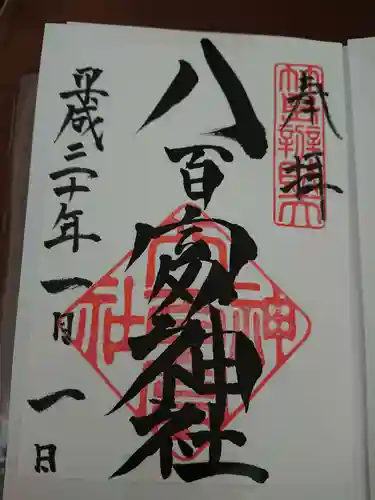 奉拝
八百富神社
平成三十年一月一日